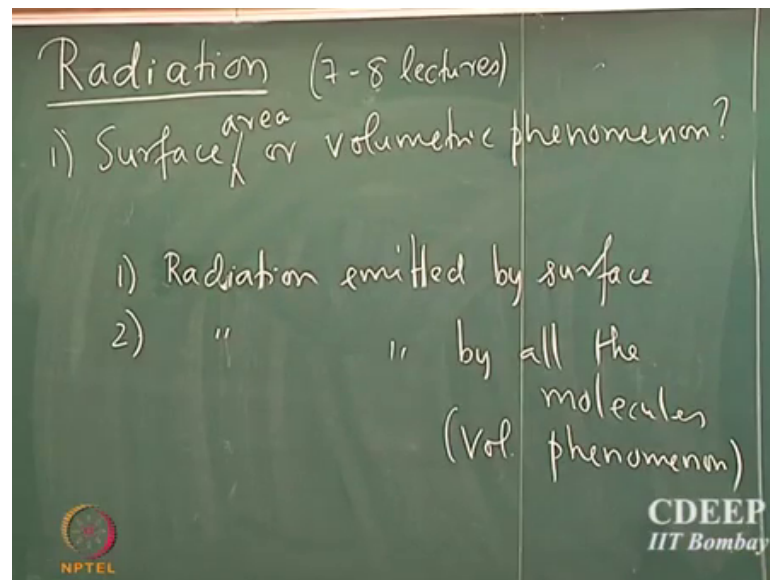 Radiation (7-8 lectures)
1) Surface area or volumetric phenomenon?
1) Radiation emitted by surface
2) " " by all the
molecules
(Vol. phenomenon)
NPTEL
CDEEP
IIT Bombay